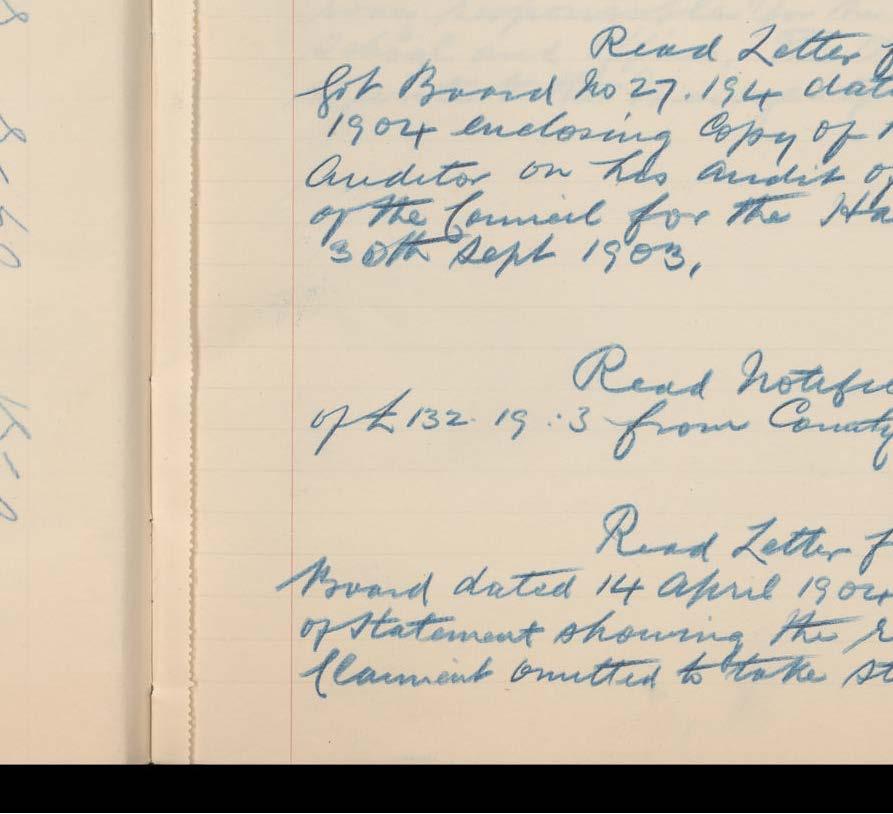 Read Letter f
Gov Board No 27.194 dat
1904 enclosing Copy of
Auditor on his audit of
of the Council for the Ha
30th Sept 1903,
Read Notific
of £132. 19 : 3 from County
Read Letter f
Board dated 14 April 1904
of Statement showing the r
Claiment omitted to take st